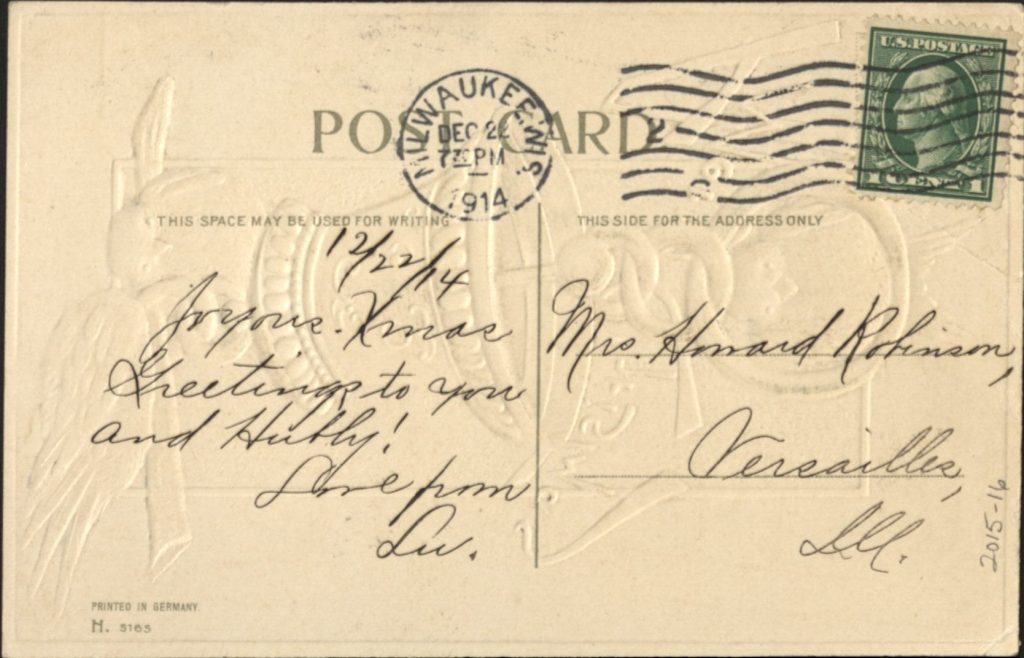 U.S. POSTAGE
POST CARD
MILWAUKEE, WIS.
DEC 22
730 PM
1914
2
1 CENT 1
THIS SPACE MAY BE USED FOR WRITING
THIS SIDE FOR THE ADDRESS ONLY
12/22/14
Joyous Xmas
Greetings to you
and Hubby!
Love from
Lu.
Mrs. Howard Robinson,
Versailles,
Ill.
2015-16
PRINTED IN GERMANY.
H. 5165